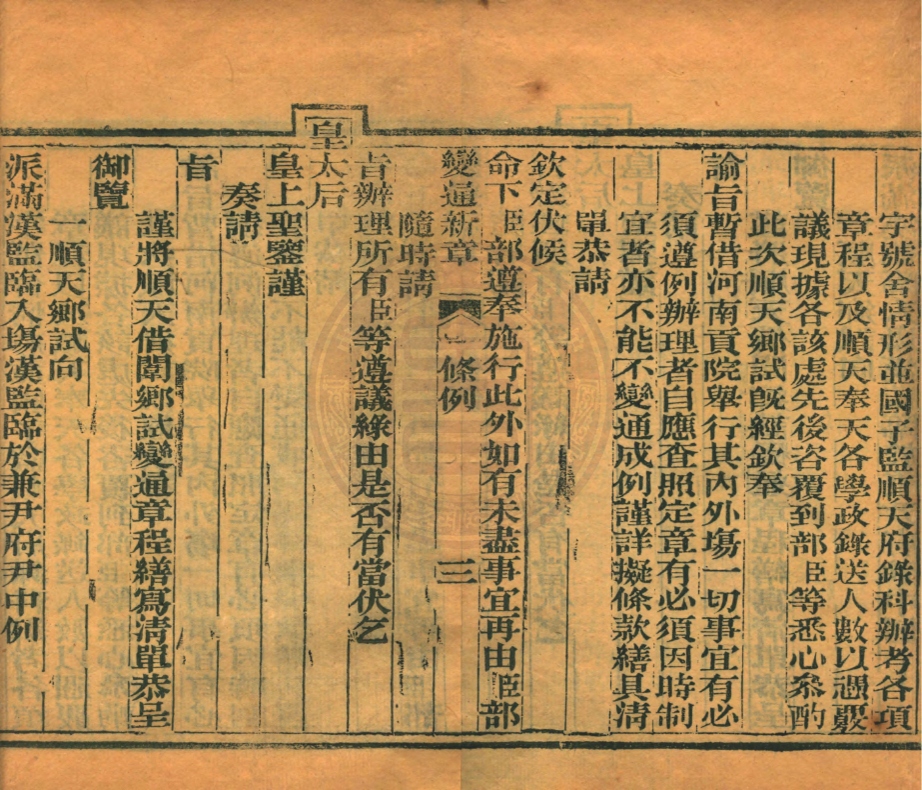 字號舍情形並國子監順天府錄科辦考各項
章程以及順天奉天各學政錄送人數以憑覈
議現據各該處先後咨覆到部臣等悉心叅酌
此次順天鄉試旣經欽奉
諭旨暫借河南貢院舉行其內外場一切事宜有必
須遵例辦理者自應查照定章有必須因時制
宜者亦不能不變通成例謹詳擬條款繕具清
單恭請
欽定伏候
命下臣部遵奉施行此外如有未盡事宜再由臣部
變通新章 條例 三
隨時請
旨辦理所有臣等遵議緣由是否有當伏乞
皇太后
皇上聖鑒謹
奏請
旨
謹將順天借闈鄉試變通章程繕寫清單恭呈
御覽
一順天鄉試向
派滿漢監臨入場漢監臨於兼尹府尹中例